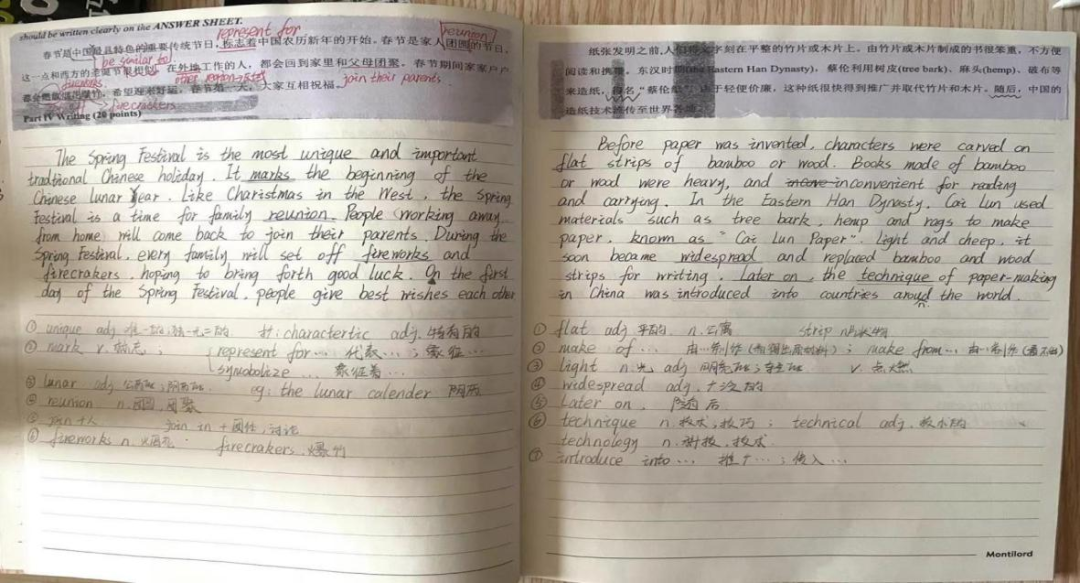 should be written clearly on the ANSWER SHEET.
represent for
reunion
春节是中国最具特色的重要传统节日，标志着中国农历新年的开始。春节是家人团圆的节日，
be similar to
这一点和西方的圣诞节很相似。在外地工作的人，都会回到家里和父母团聚。春节期间家家户户
join their parents
都会燃放烟花爆竹，希望迎来好运。春节第一天，大家互相祝福。
firecrackers
Part IV Writing (20 points)
The Spring Festival is the most unique and important
traditional Chinese holiday. It marks the beginning of the
Chinese lunar Year. Like Charistmas in the West, the Spring
Festival is a time for family reunion. People working away
from home will come back to join their parents. During the
Spring Festival, every family will set off fireworks and
firecrakers, hoping to bring forth good luck. On the first
day of the Spring Festival, people give best wishes each other
① unique adj. 唯一的,独一无二的 charactertic adj. 特有的
② mark v. 标志； represent for… 代表…；象征…
symobolize … 象征着…
③ lunar adj. eg: the lunar calender 阴历
④ reunion n. 团圆,团聚
⑤ join+人 join in + 讨论
⑥ fireworks n. 烟花 firecrakers. 爆竹
纸张发明之前,人们将文字刻在平整的竹片或木片上。由竹片或木片制成的书很笨重，不方便
阅读和携带。东汉时期(the Eastern Han Dynasty)，蔡伦利用树皮(tree bark)、麻头(hemp)、破布等
来造纸，得名“蔡伦纸”。由于轻便价廉，这种纸很快得到推广并取代竹片和木片。随后，中国的
造纸技术被传至世界各地。
Before paper was invented, characters were carved on
flat strips of bamboo or wood. Books made of bamboo
or wood were heavy, and inconvenient for reading
and carrying. In the Eastern Han Dynasty, Cai Lun used
materials such as tree bark, hemp and rags to make
paper, known as "Cai Lun Paper". Light and cheep, it
soon became widespread and replaced bamboo and wood
strips for writing. Later on, the technique of paper-making
in China was introduced into countries around the world.
① flat adj 平的, n.公寓 strip n.
② make of … 由…制作 ; make from… 由…制作
③ light n.光 adj 明亮的； v. 点燃
④ widespread adj. 广泛的
⑤ Later on. 随后
⑥ technique n. 技术,技巧； technical adj. 技术的
technology n. 科技,技术
⑦ introduce into … 推广…；传入…
Montilord